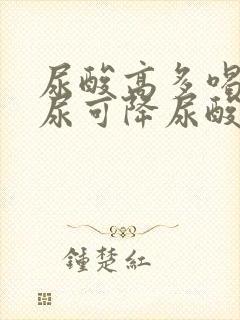 尿酸高多喝
尿可降尿酸
鍾楚紅